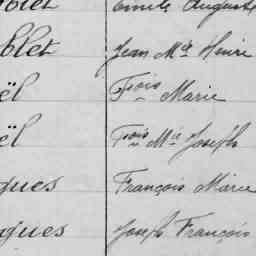 blet Emile Auguste
blet Jean Mie Henri
ël Fois Marie
ël Fois Mie Joseph
gues François Marie
gues Joseph François